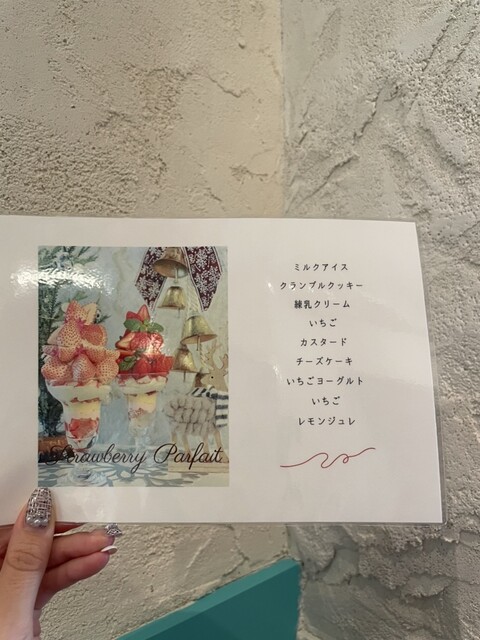 Strawberry Parfait
ミルクアイス
クランブルクッキー
練乳クリーム
いちご
カスタード
チーズケーキ
いちごヨーグルト
いちご
レモンジュレ